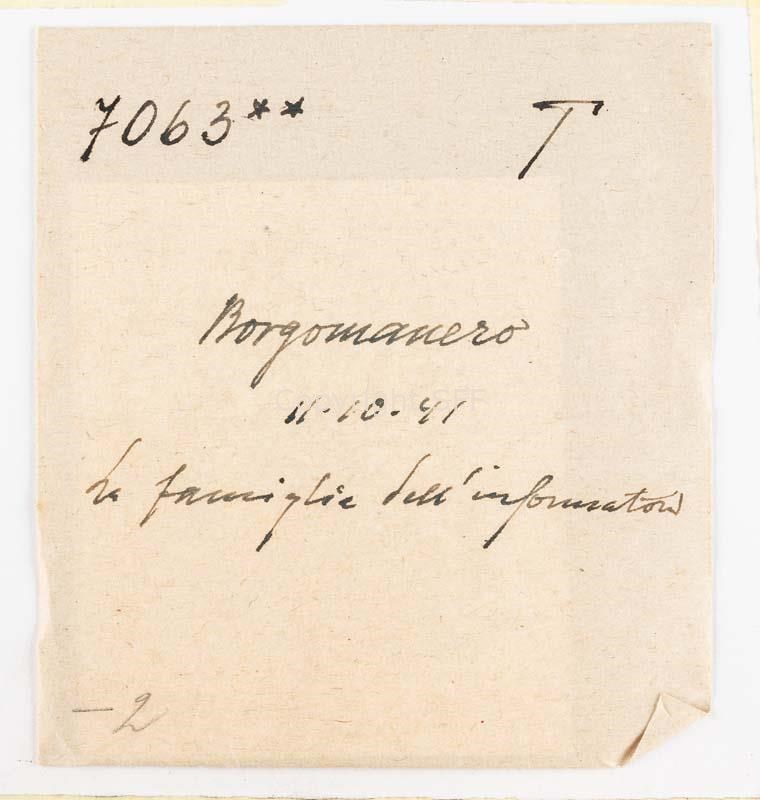 7063** T
Borgomanero
11-10-41
La famiglia dell'informatore
-2